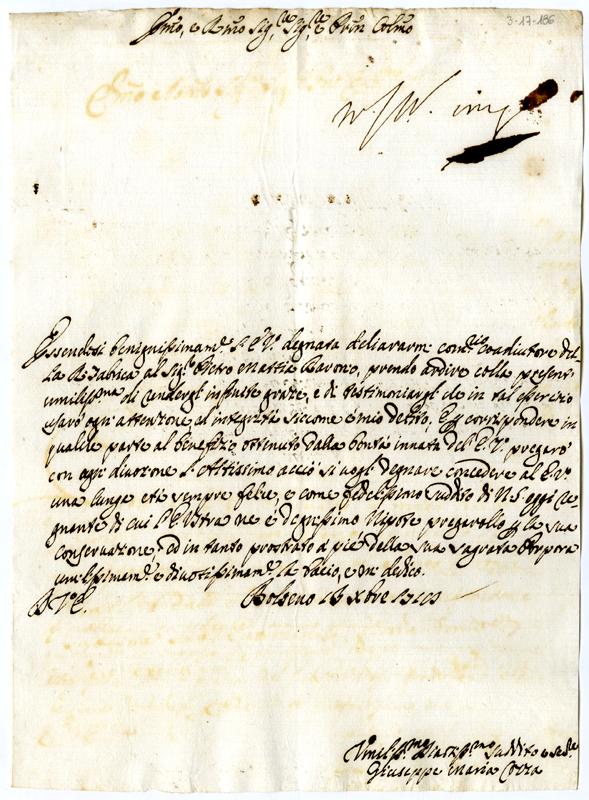 3-17-186
Emo, e Rmo Sig.re Sig.re e Pron Colmo
Essendosi benignissimam.te l'E.V. degnata dichiararmi Coadiutore del-
la R. Fabrica al Sig.r Pietro Mattia Barono, prendo ardire colla presente
umiliss.ma di rendergli infinite grazie, e di testimoniargli che in tal esercizio
usarò ogni attenzione, ed integrità siccome è mio debito. E p corrispondere in
qualche parte al benefizio ottenuto dalla bontà innata dell'E.V. pregarò
con ogni divozione l'Altissimo acciò si vogli degnare concedere al E.V.
una lunga età sempre felice, e come fedelissimo suddito di N.S. oggi re-
gnante di cui l'E. Vstra ne è degnissimo Nipote pregarollo p la sua
conservazione. Ed in tanto prostrato a piè della sua sagrata Porpora
umilissimam.te e divotissimam.te la bacio, e mi dedico.
D.V.E. Bolseno 18 Xbre
Umiliss.mo suddito e
Giuseppe Maria Cozza